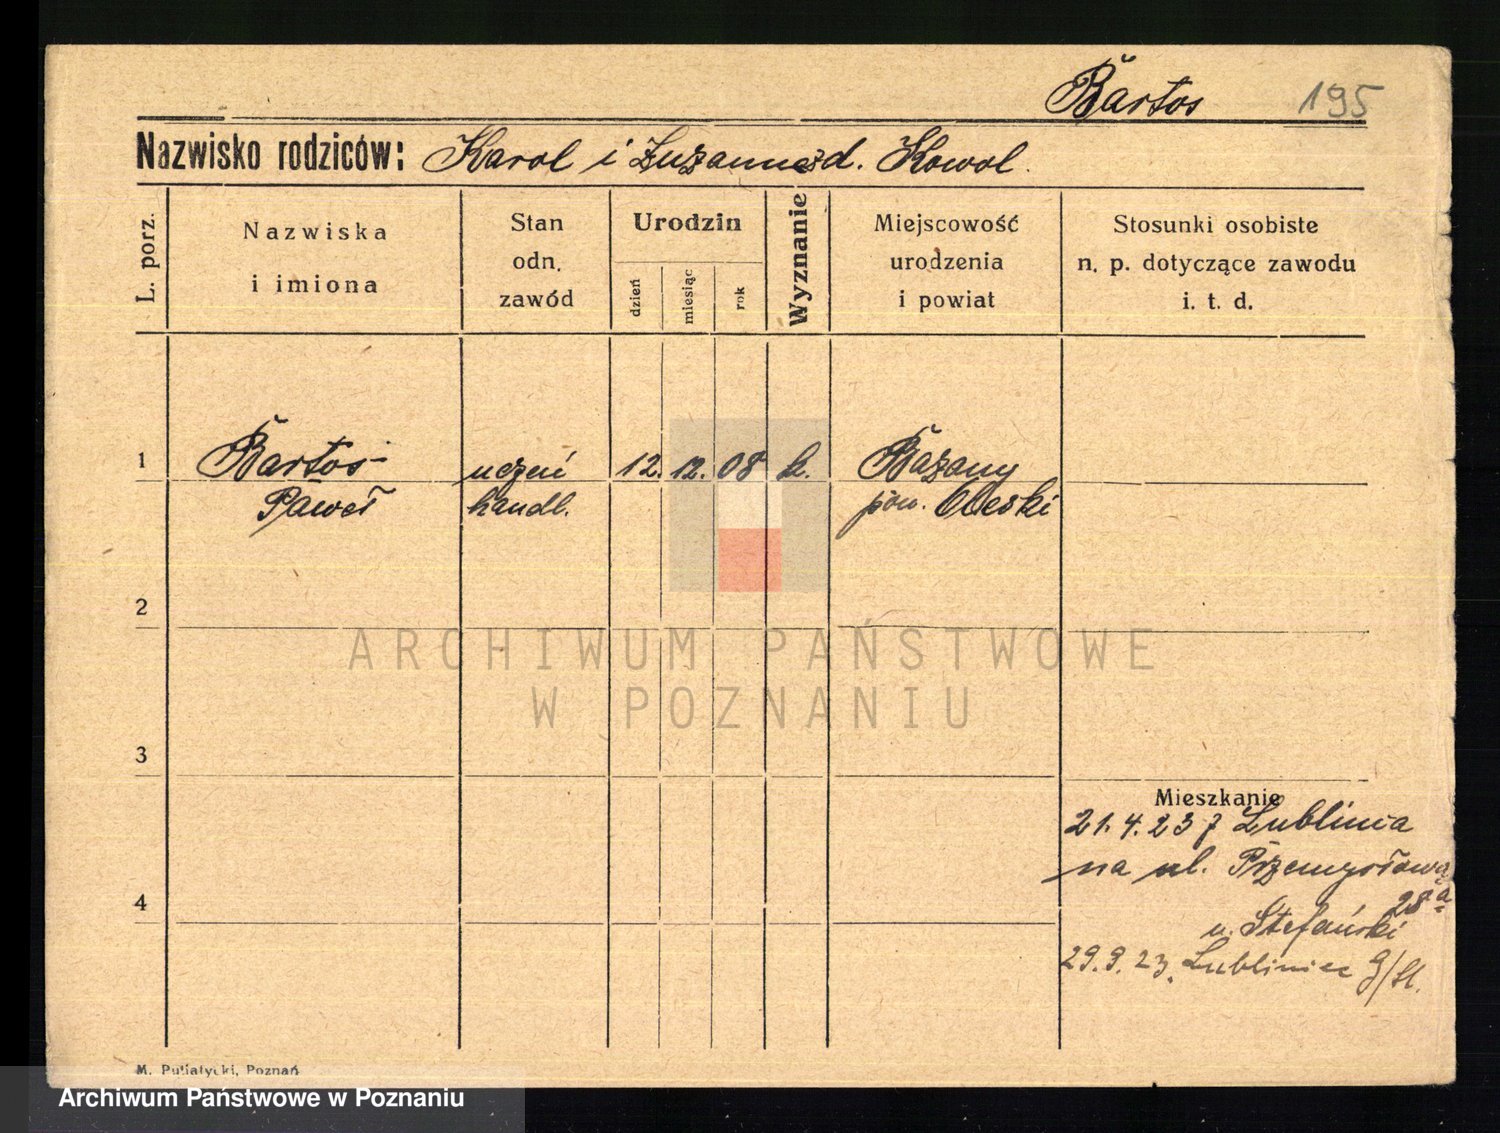 Bartos 195
Nazwisko rodziców: Karol i Zuzanna zd. Kowol.
L. porz.
Nazwiska
i imiona
Stan
odn.
zawód
Urodzin
dzień
miesiąc
rok
Wyznanie
Miejscowość
urodzenia
i powiat
Stosunki osobiste
n. p. dotyczące zawodu
i. t. d.
1 Bartos uczeń 12. 12. 08 k. Bazany
Paweł handl. pow. Oleski
2
3
4
Mieszkanie
21.4.23 z Lublińca
na ul. Przemysłową
28a
u. Stefański
29.9.23. Lubliniec G/Sl.
M. Putiatycki, Poznań
ARCHIWUM PAŃSTWOWE
W POZNANIU
Archiwum Państwowe w Poznaniu